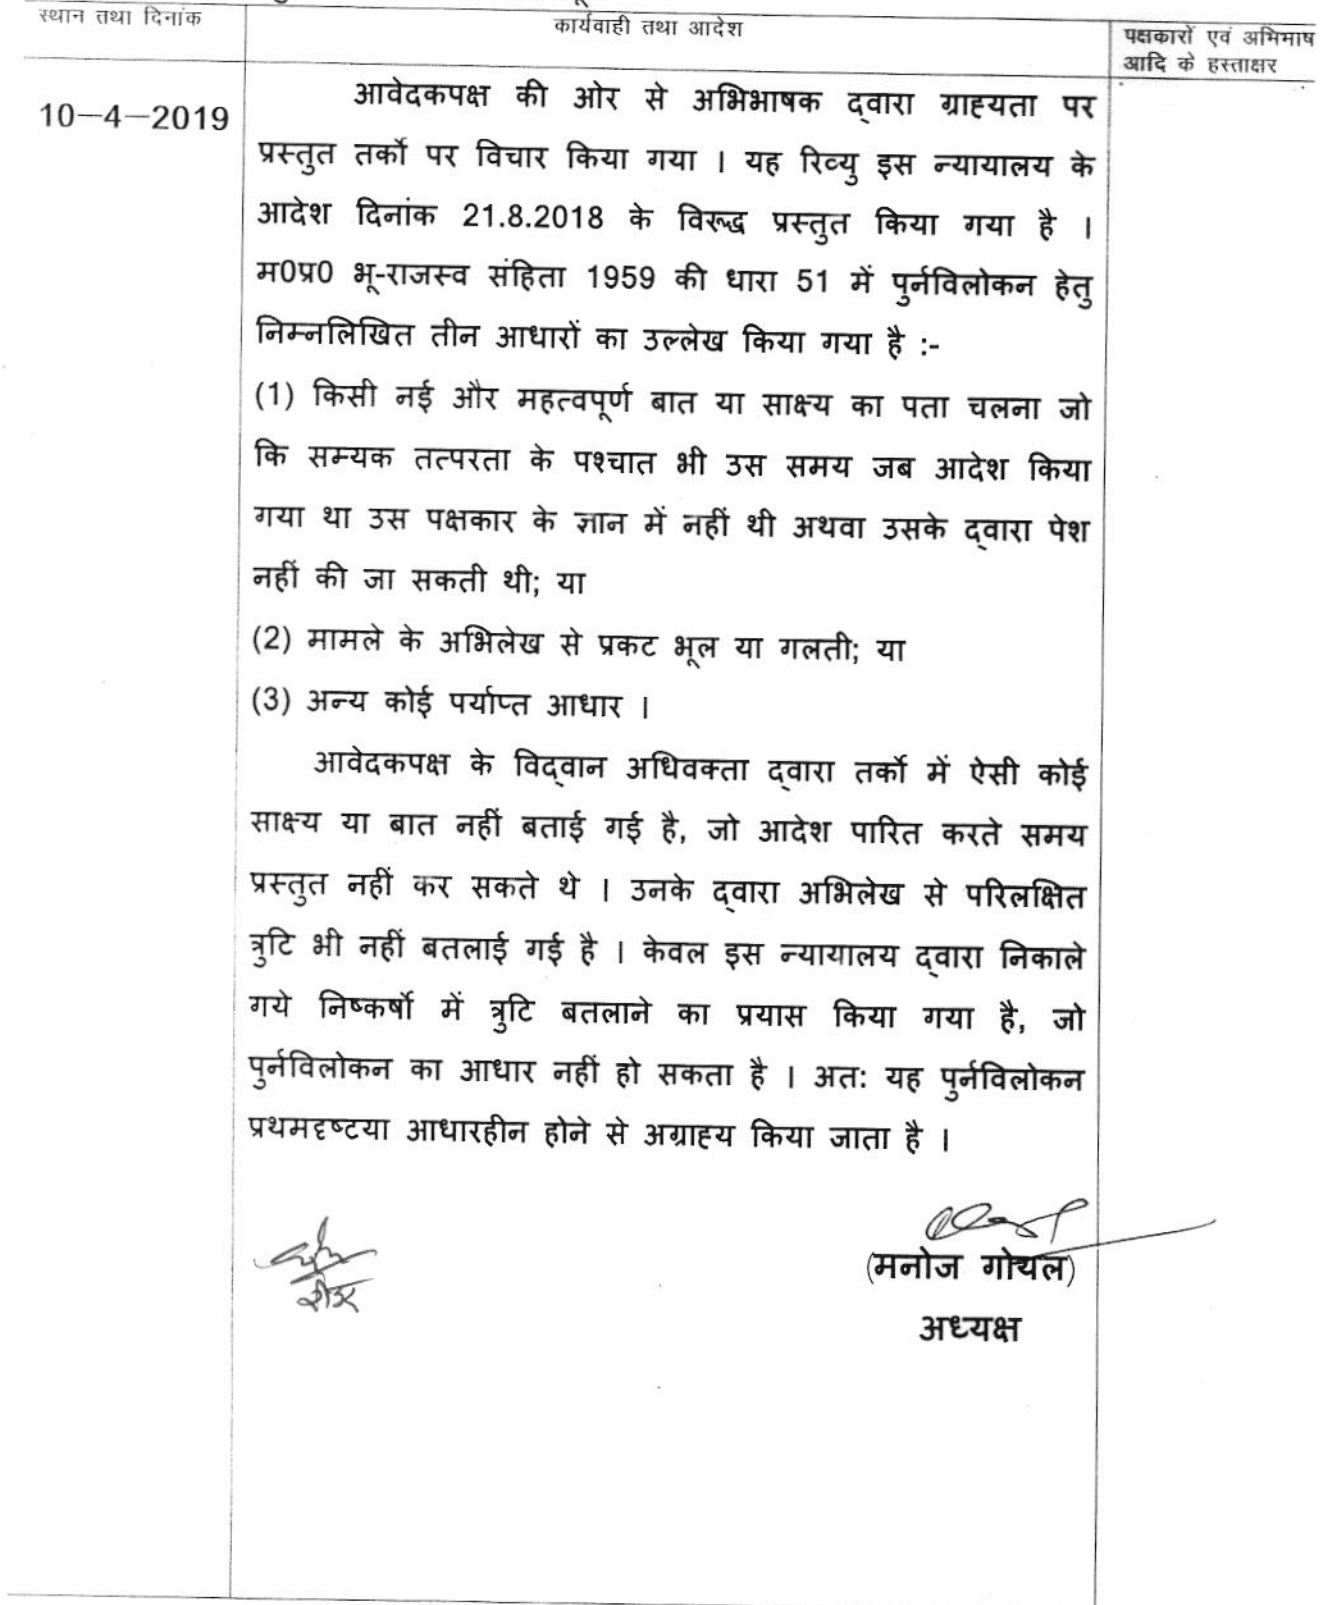 स्थान तथा दिनांक
कार्यवाही तथा आदेश
पक्षकारों एवं अभिभाष
आदि के हस्ताक्षर
10-4-2019
आवेदकपक्ष की ओर से अभिभाषक द्वारा ग्राह्यता पर
प्रस्तुत तर्को पर विचार किया गया । यह रिव्यु इस न्यायालय के
आदेश दिनांक 21.8.2018 के विरूद्ध प्रस्तुत किया गया है ।
म0प्र0 भू-राजस्व संहिता 1959 की धारा 51 में पुर्नविलोकन हेतु
निम्नलिखित तीन आधारों का उल्लेख किया गया है :-
(1) किसी नई और महत्वपूर्ण बात या साक्ष्य का पता चलना जो
कि सम्यक तत्परता के पश्चात भी उस समय जब आदेश किया
गया था उस पक्षकार के ज्ञान में नहीं थी अथवा उसके द्वारा पेश
नहीं की जा सकती थी; या
(2) मामले के अभिलेख से प्रकट भूल या गलती; या
(3) अन्य कोई पर्याप्त आधार ।
आवेदकपक्ष के विद्वान अधिवक्ता द्वारा तर्को में ऐसी कोई
साक्ष्य या बात नहीं बताई गई है, जो आदेश पारित करते समय
प्रस्तुत नहीं कर सकते थे । उनके द्वारा अभिलेख से परिलक्षित
त्रुटि भी नहीं बतलाई गई है । केवल इस न्यायालय द्वारा निकाले
गये निष्कर्षो में त्रुटि बतलाने का प्रयास किया गया है, जो
पुर्नविलोकन का आधार नहीं हो सकता है । अत: यह पुर्नविलोकन
प्रथमदृष्टया आधारहीन होने से अग्राह्य किया जाता है ।
(मनोज गोयल)
अध्यक्ष